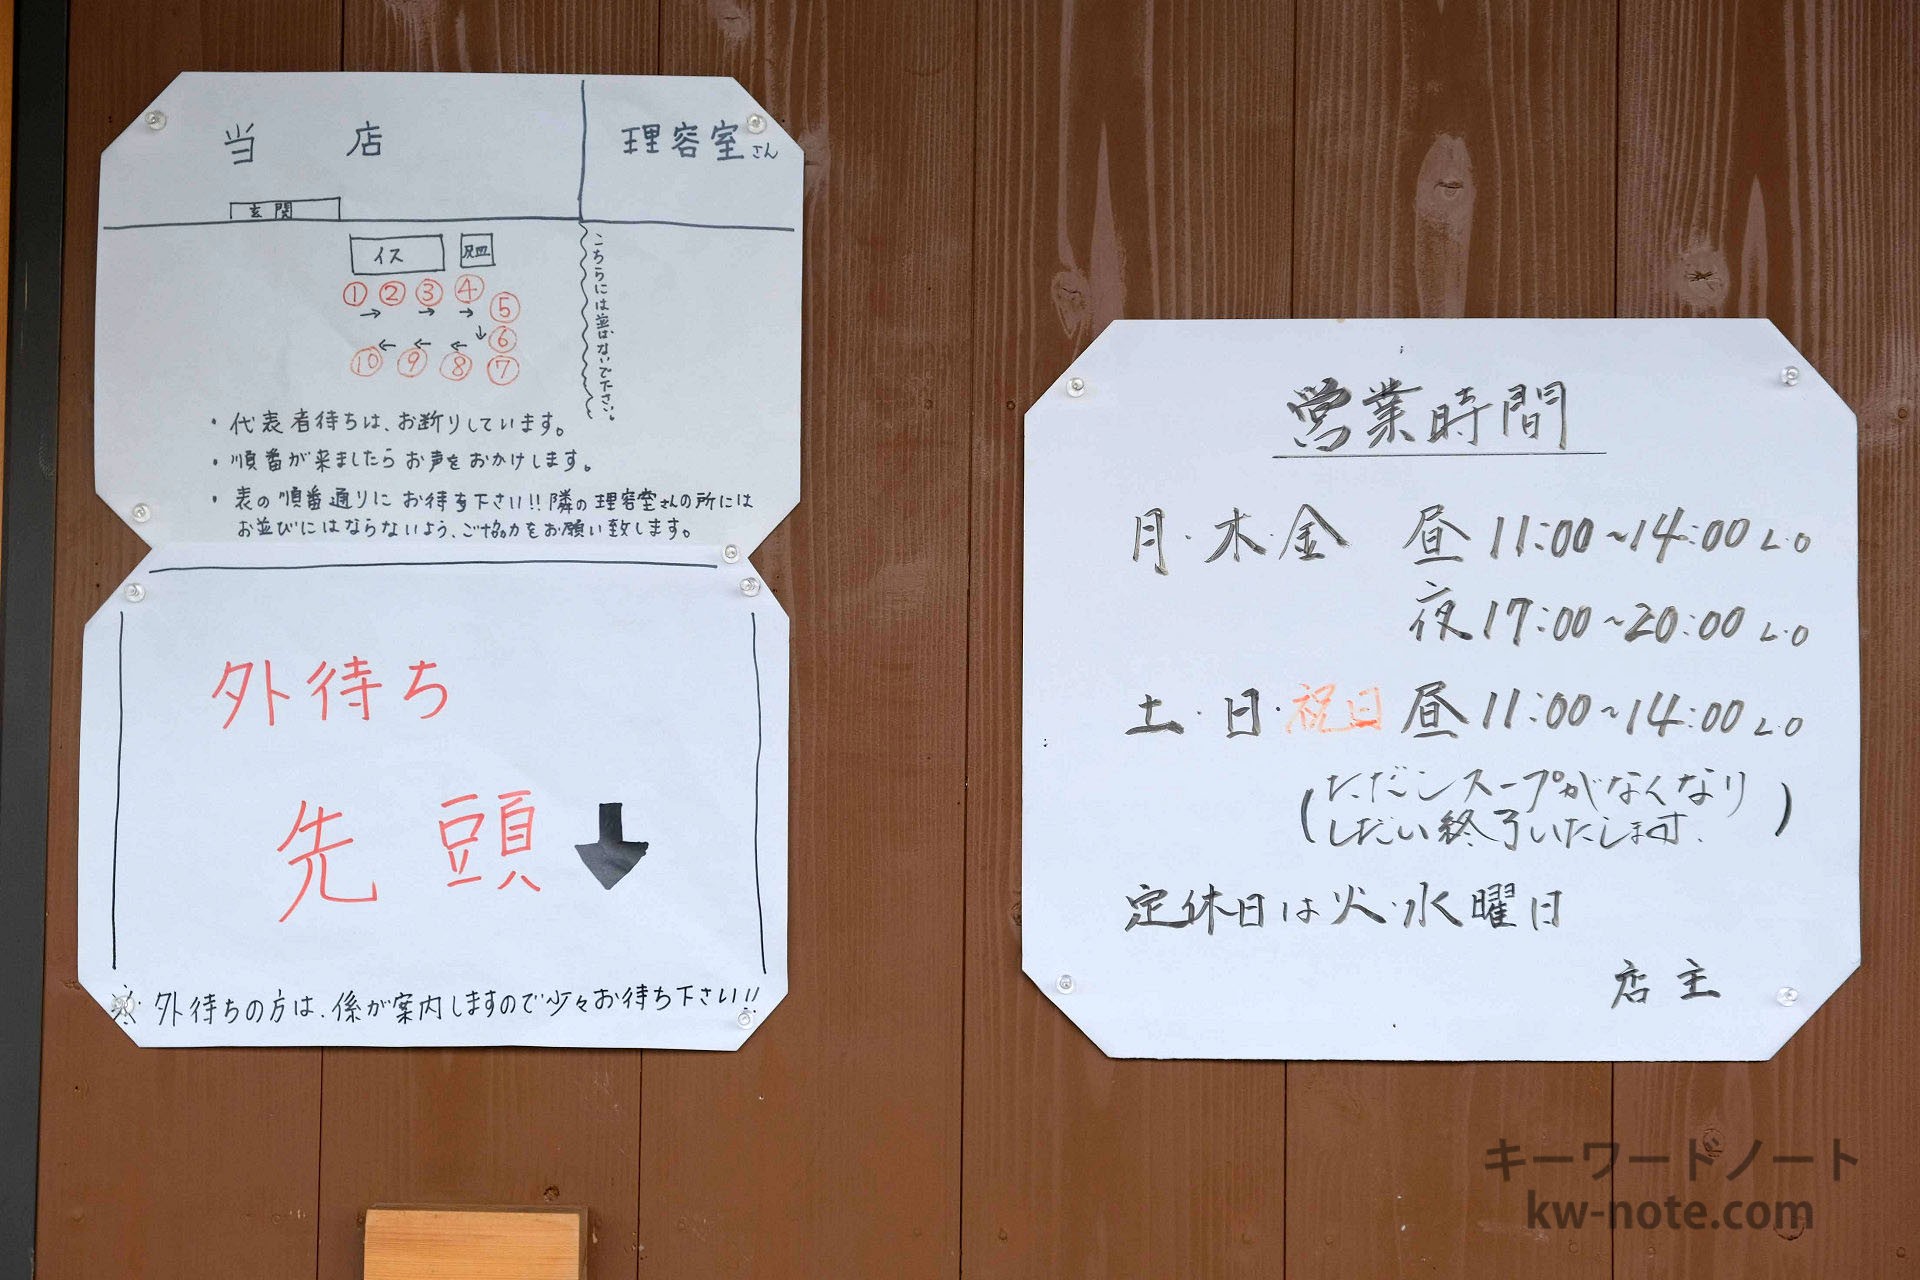 当店
理容室さん
玄関
イス
灰皿
こちらには並ばないで下さい。
① ② ③ ④
⑤
⑥
⑩ ⑨ ⑧ ⑦
・代表者待ちは、お断りしています。
・順番が来ましたらお声をおかけします。
・表の順番通りにお待ち下さい!!隣の理容室さんの所には
お並びにはならないよう、ご協力をお願い致します。
外待ち
先頭
※外待ちの方は、係が案内しますので少々お待ち下さい!!
営業時間
月・木・金 昼11:00~14:00 L.O
夜17:00~20:00 L.O
土・日・祝日 昼11:00~14:00 L.O
(ただしスープがなくなり
しだい終了いたします.)
定休日は火・水曜日
店主
キーワードノート
kw-note.com